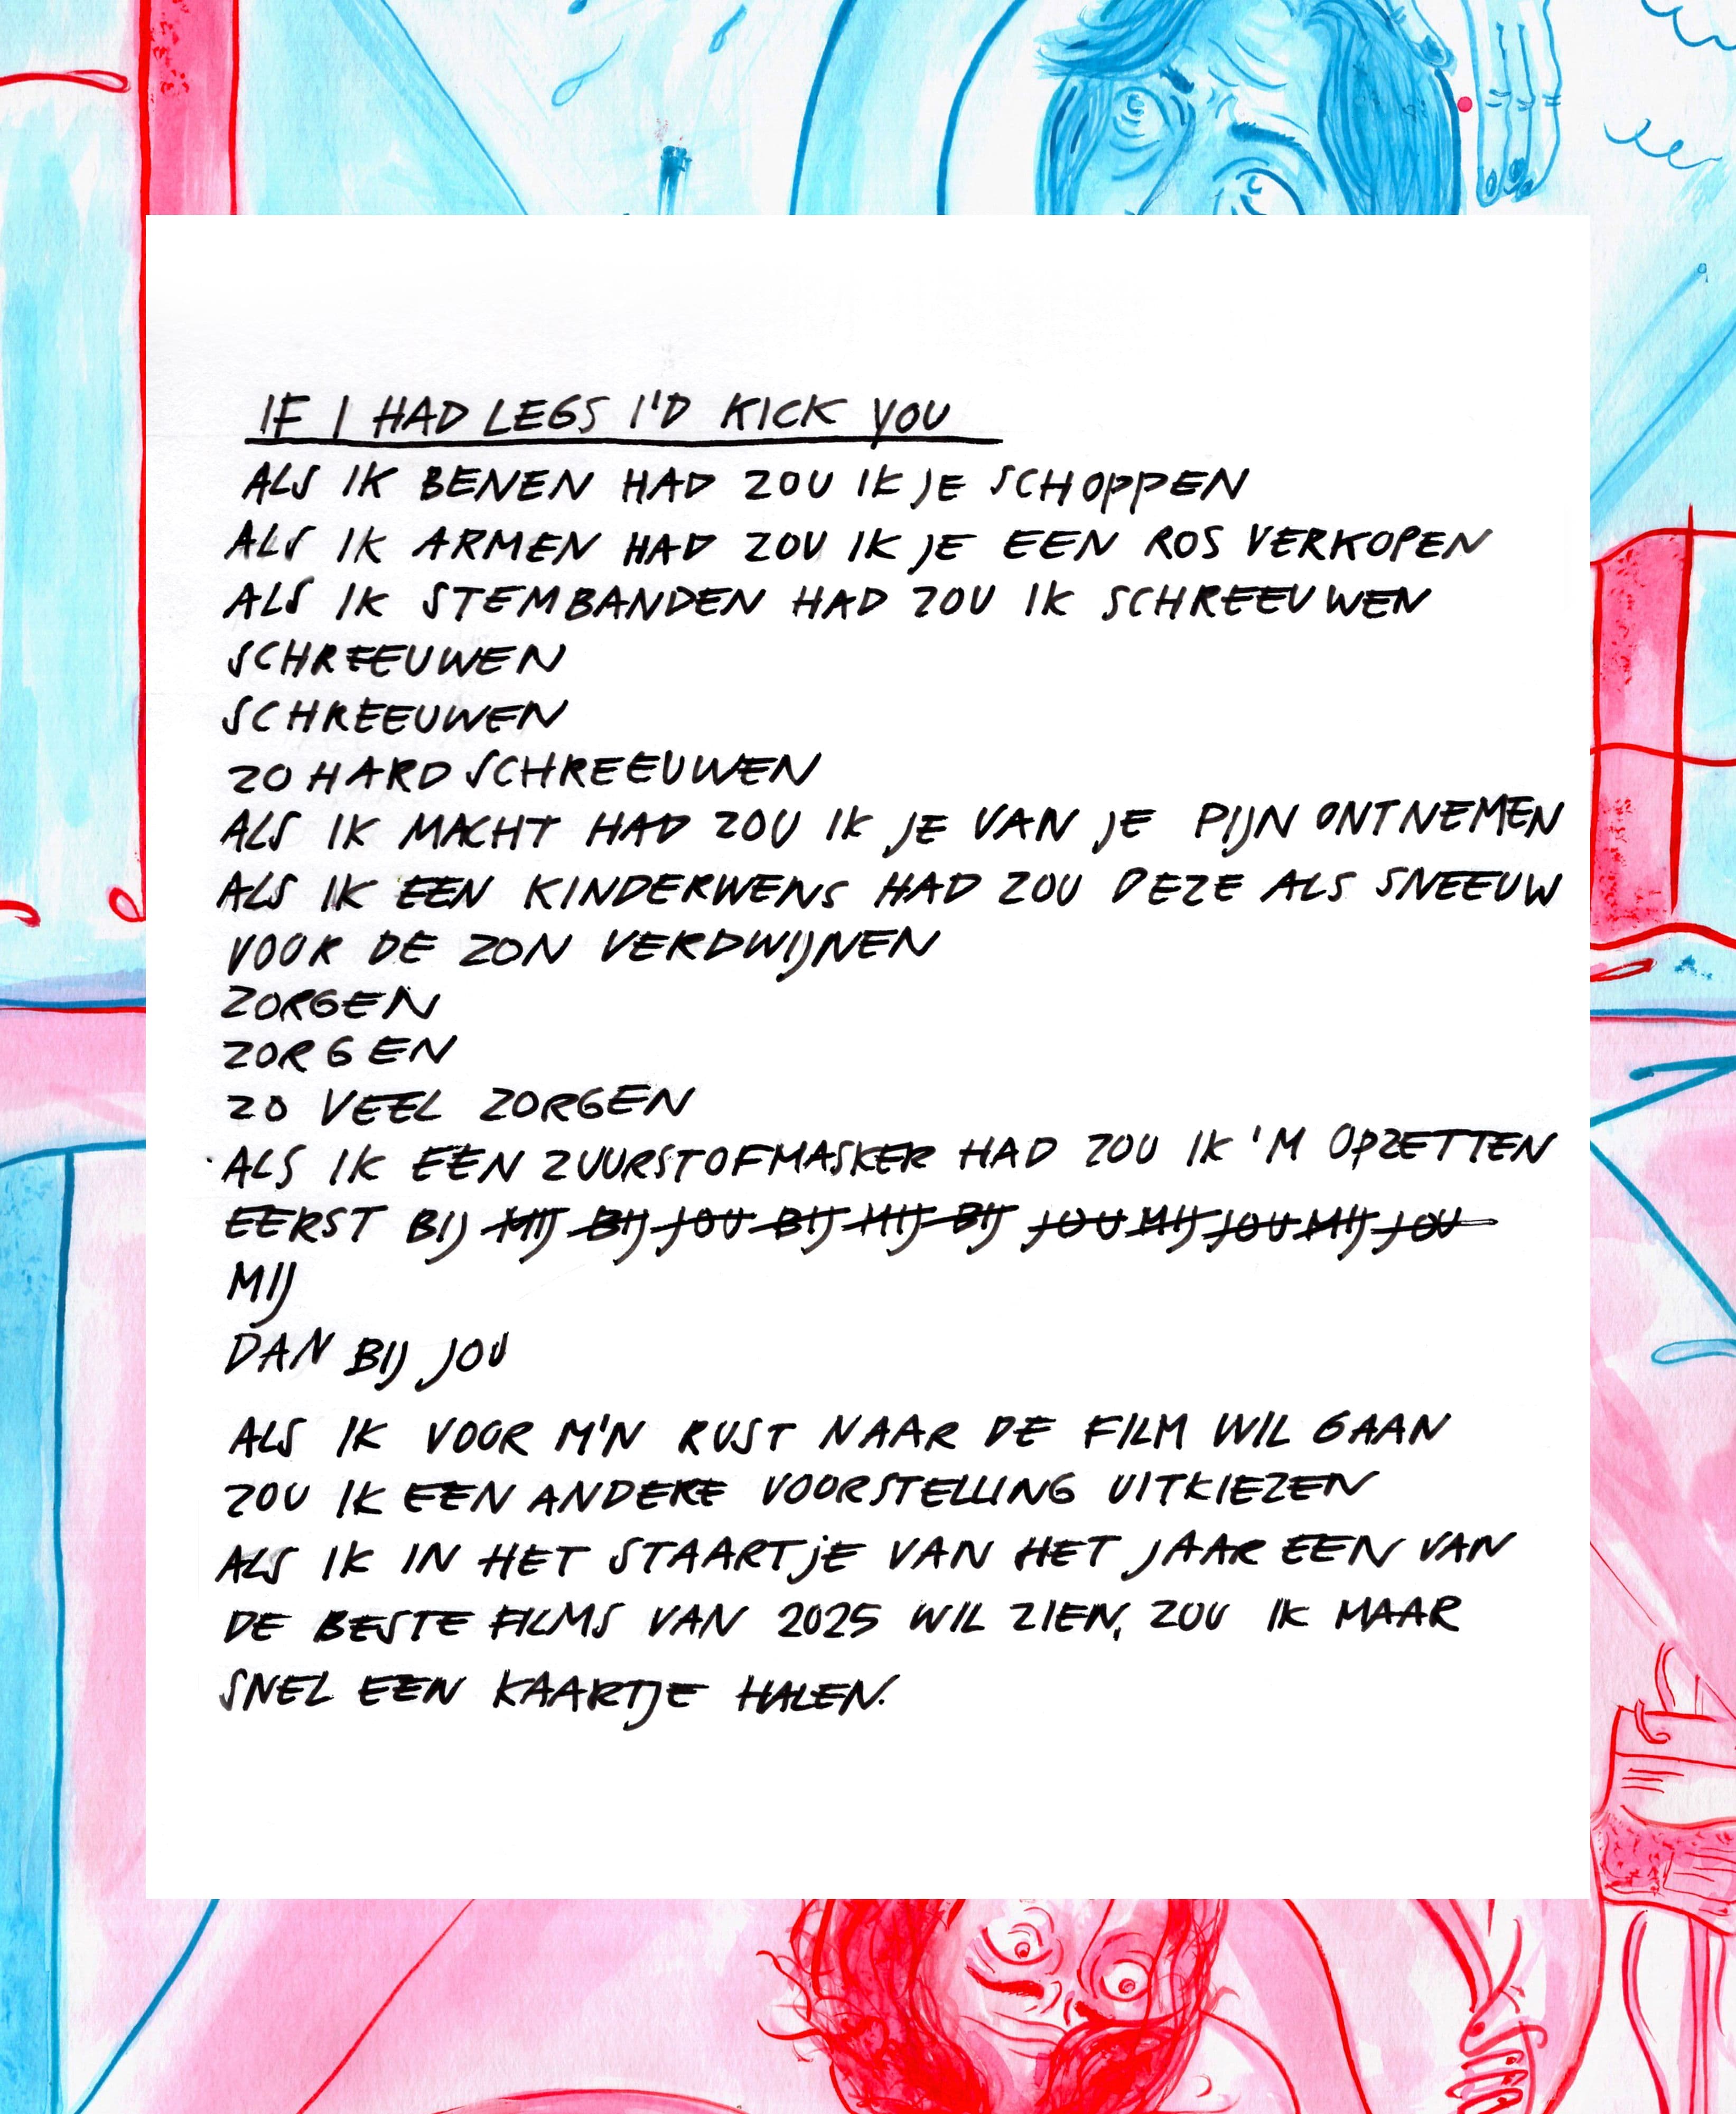 IF I HAD LEGS I'D KICK YOU
ALS IK BENEN HAD ZOU IK JE SCHOPPEN
ALS IK ARMEN HAD ZOU IK JE EEN ROS VERKOPEN
ALS IK STEMBANDEN HAD ZOU IK SCHREEUWEN
SCHREEUWEN
SCHREEUWEN
ZO HARD SCHREEUWEN
ALS IK MACHT HAD ZOU IK JE VAN JE PIJN ONTNEMEN
ALS IK EEN KINDERWENS HAD ZOU DEZE ALS SNEEUW
VOOR DE ZON VERDWIJNEN
ZORGEN
ZORGEN
ZO VEEL ZORGEN
ALS IK EEN ZUURSTOFMASKER HAD ZOU IK 'M OPZETTEN
EERST BIJ MIJ BIJ JOU BIJ MIJ BIJ JOU MIJ JOU MIJ JOU
MIJ
DAN BIJ JOU
ALS IK VOOR M'N RUST NAAR DE FILM WIL GAAN
ZOU IK EEN ANDERE VOORSTELLING UITKIEZEN
ALS IK IN HET STAARTJE VAN HET JAAR EEN VAN
DE BESTE FILMS VAN 2025 WIL ZIEN, ZOU IK MAAR
SNEL EEN KAARTJE HALEN.